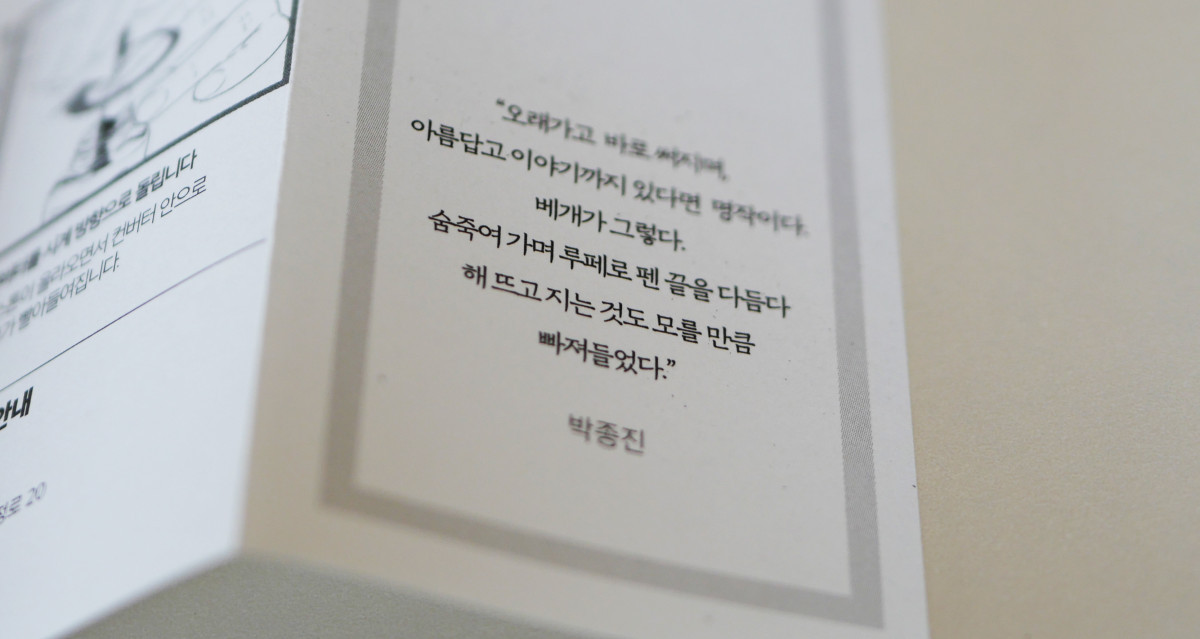 시계 방향으로 돌립니다
올라오면서 컨버터 안으로
빨아들여집니다.
안내
20
“오래가고 바로 써지며,
아름답고 이야기까지 있다면 명작이다.
베개가 그렇다.
숨죽여 가며 루페로 펜 끌을 다듬다
해 뜨고 지는 것도 모를 만큼
빠져들었다.”
박종진